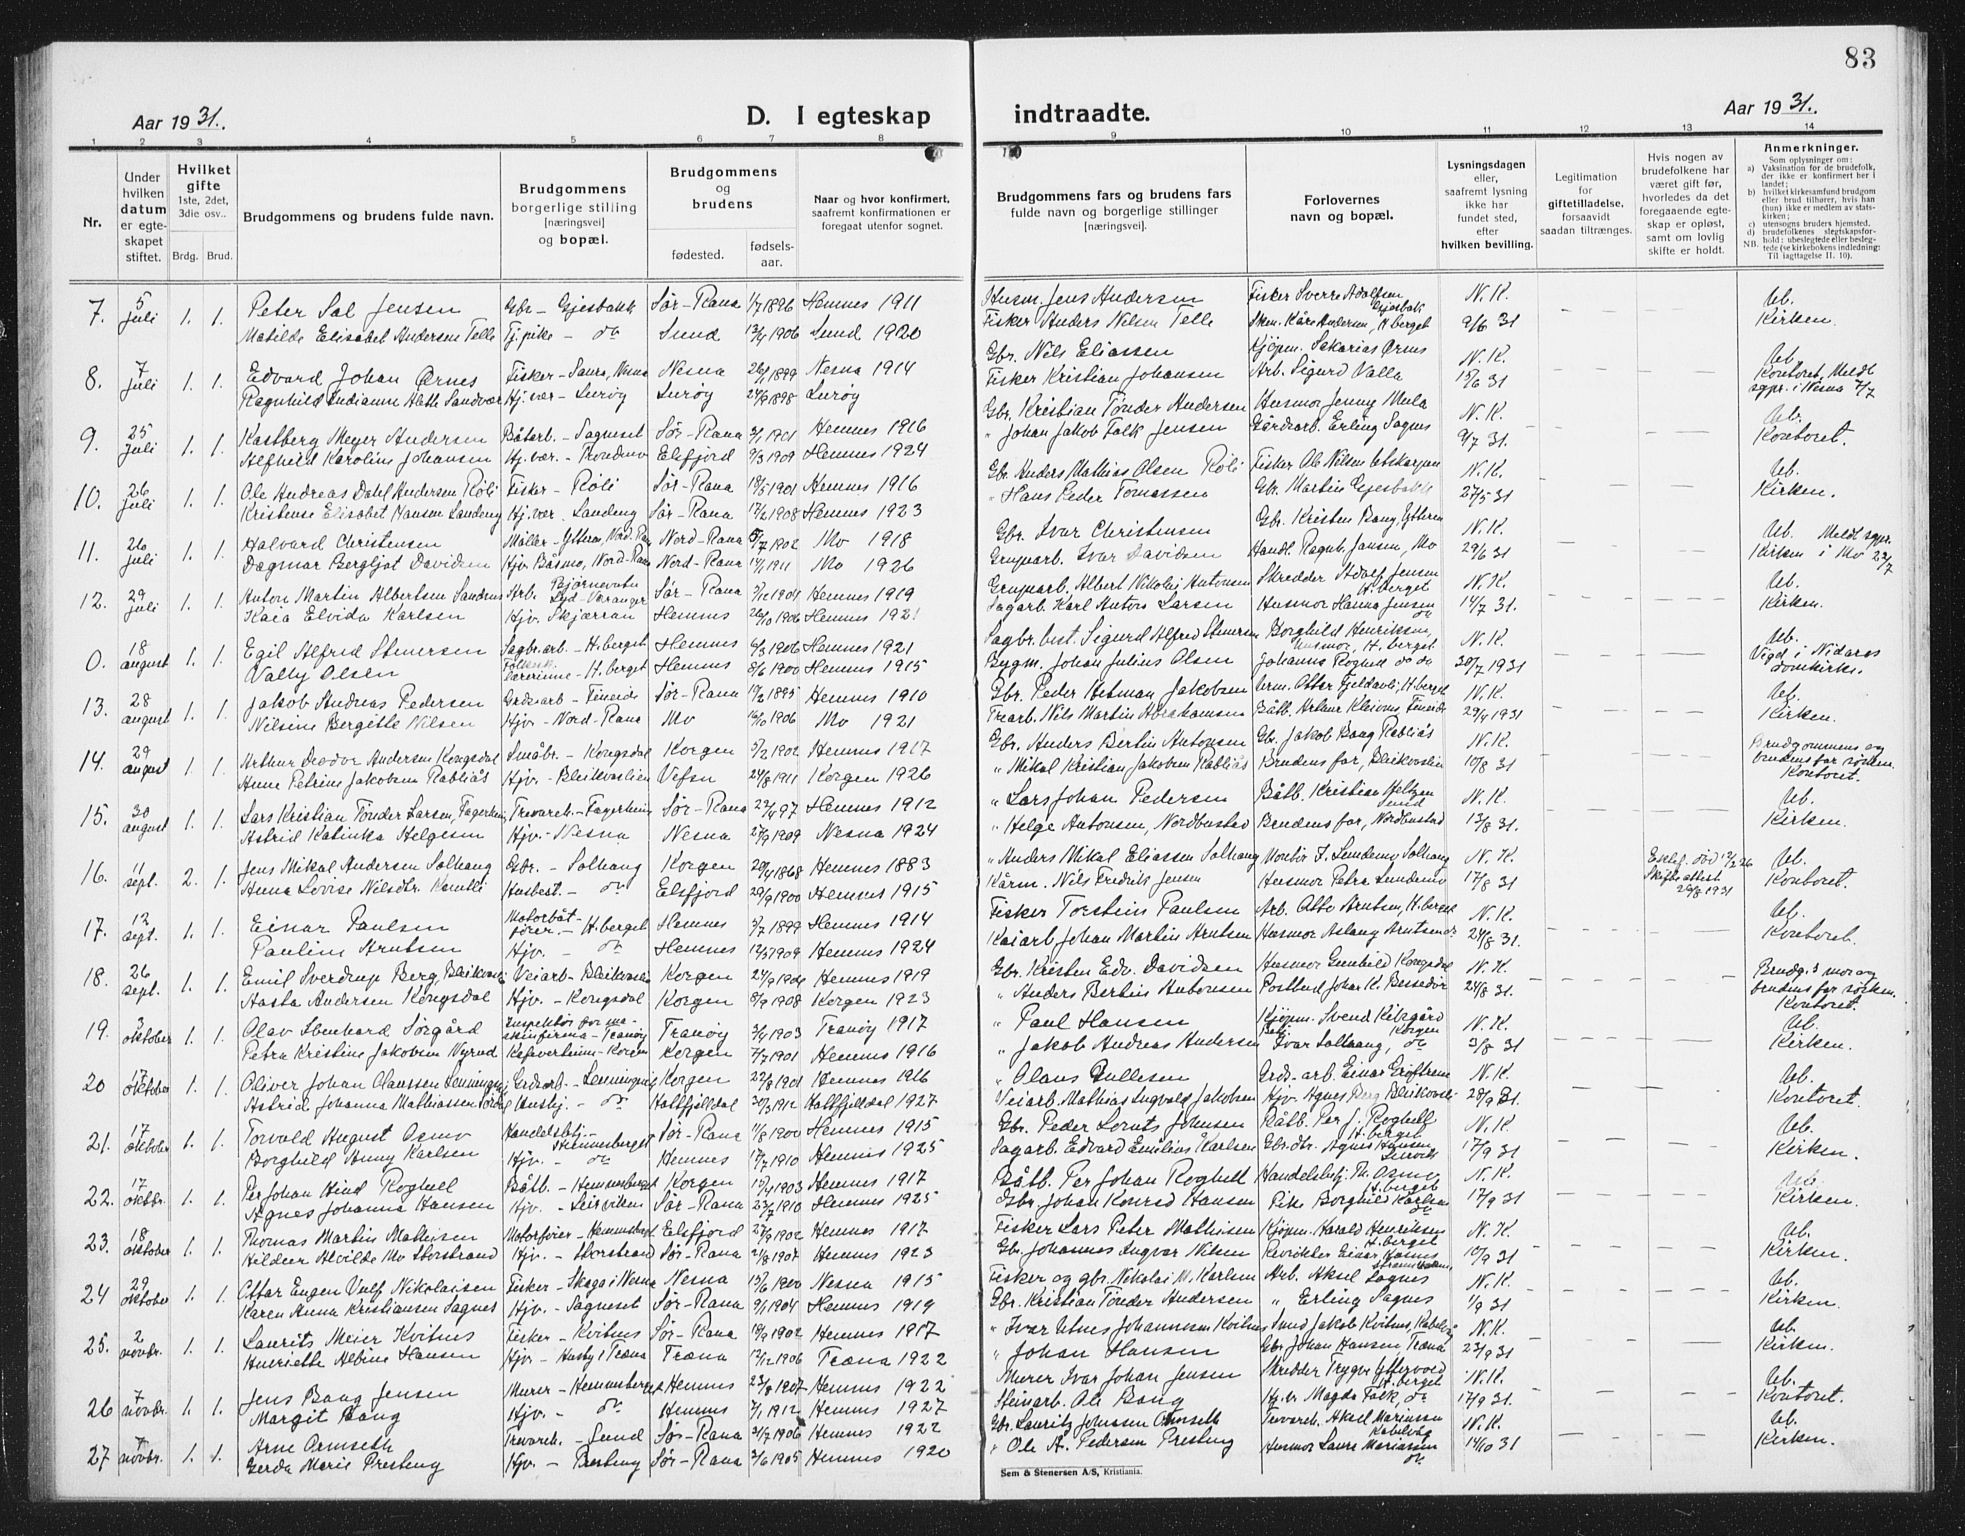 83
Aar 1931.
D. I egteskap
indtraadte.
Aar 1931.
1 2 3 4 5 6 7 8
9 10 11 12 13 14
Nr.
Under hvilken datum er egteskapet stiftet.
Hvilket gifte 1ste, 2det, 3die osv..
Brdg. Brud.
Brudgommens og brudens fulde navn.
Brudgommens borgerlige stilling [næringsvei] og bopæl.
Brudgommens og brudens
fødested.
fødsels-aar.
Naar og hvor konfirmert, saafremt konfirmationen er foregaat utenfor sognet.
Brudgommens fars og brudens fars fulde navn og borgerlige stillinger [næringsvei].
Forlovernes navn og bopæl.
Lysningsdagen eller, saafremt lysning ikke har fundet sted, efter hvilken bevilling.
Legitimation for giftetilladelse, forsaavidt saadan tiltrænges.
Hvis nogen av brudefolkene har været gift før, hvorledes da det foregaaende egteskap er opløst, samt om lovlig skifte er holdt.
Anmerkninger.
Som oplysninger om:
a) Vaksination for de brudefolk, der ikke er konfirmert her i landet;
b) hvilket kirkesamfund brudgom eller brud tilhører, hvis han (hun) ikke er medlem av statskirken;
c) utensogns bruders hjemsted.
d) brudefolkenes slegtskapsforhold: ubeslegtede eller beslegtede (se kirkebokens indledning:
NB. Til iagttagelse II. 10).
7. 5 juli 1. 1. Peter Sol Jensen Gbr - Gjesbakk Sør-Rana 1/7 1896 Hemnes 1911 Husm. Jens Andersen Fisker Sverre Adolfsen Gjesbakk N.K. Ub.
Matilde Elisabet Andersene Telle Tj.pike - do Sund 13/4 1906 Sund 1920 Fisker Anders Nilsen Telle Kåre Andersen, H.berget 9/6 31 Kirken.
8. 7 juli 1. 1. Edvard Johan Ørnes Fisker - Saura, Nesna Nesna 26/1 1899 Nesna 1914 Gbr. Nils Eliassen Kjøpm. Sakarias Ørnes N.K. Ub.
Ragnhild Indianne Alette Sandvær Hj.vær - Lurøy Lurøy 24/9 1898 Lurøy Fisker Kristian Johansen Arb. Sigurd Valla 15/6 31 Kontoret. Meldt sgpr. i Nesna 7/7
9. 25 juli 1. 1. Kastberg Meyer Andersen Båtarb. - Sagneset Sør-Rana 3/1 1901 Hemnes 1916 Gbr. Kristian Tønder Andersen Husmor Jenny Mela N.K. Ub.
Alfhild Karoline Johansen Hj.vær. - Elsfjord 9/3 1909 Hemnes 1924 " Johan Jakob Falk Jensen Gårdsarb. Erling Sagnes 9/7 31. Kontoret.
10. 26 juli 1. 1. Ole Andreas Dahl Andersen Røli Fisker - Røli Sør-Rana 18/5 1901 Hemnes 1916 Gbr. Anders Mathias Olsen Røli Fisker Ole Nilsen N.K. Ub.
Kristense Elisabet Hansen Sandeng Hj.vær. Sandeng Sør-Rana 17/2 1908 Hemnes 1923 " Hans Peder Tomassen Gbr. Martin Gjesbakk 27/5 31 Kirken.
11. 26 juli 1. 1. Halvard Christensen Møller - Ytteren, Nord-Rana Nord-Rana 5/7 1902 Mo 1918 Gbr. Ivar Christensen Gbr. Kristen Bang, Ytteren N.K. Ub. Meldt sgpr.
Dagmar Bergljot Davidsen Hjv. Båsmo, Nord-Rana Nord-Rana 14/1 1911 Mo 1926 Grubearb. Ivar Davidsen Handl. Ragnv. Jansen, Mo 29/6 31 Kirken i Mo 22/7
12. 29 juli 1. 1. Anton Martin Albertsen Sandnes Arb. Bjørnevatn Syd-Varanger Sør-Rana 1904 Hemnes 1919 Grubearb. Albert Nikolaj Antonsen Skredder Adolf Jensen H.berget N.K. Ub.
Kaia Elvida Karlsen Hjv. Skjærran Hemnes 26/10 1906 Hemnes 1921 Sagarb. Karl Anton Larsen Husmor Hanna Jensen do 14/7 31. Kirken.
0. 18 august 1. 1. Egil Alfred Stenersen Sagbr.arb - H.berget Hemnes 6/3 1906 Hemnes 1921 Sagbr.best. Sigurd Alfred Stenersen Borghild Henriksen Husmor, H.berget N.K. Ub.
Valty Olsen Lærerinne - H.berget Hemnes 8/6 1900 Hemnes 1915 Bygm. Johan Julius Olsen Johanna Roghell do do 30/7 1931 Vigd i Nidaros domkirke.
13. 28 august 1. 1. Jakob Andreas Pedersen Grdsarb - Fineide Sør-Rana 19/2 1895 Hemnes 1910 Gbr. Peder Hetman Jakobsen Otter Fjeldavli, H.berget N.K. Ub.
Nilsine Bergitte Nilsen Hjv - Nord-Rana Mo 16/10 1906 Mo 1921 Trearb. Nils Martin Abrahamsen Båtb. Arthur Kleivnes, Fineide 29/4 1931 Kirken.
14. 29 august 1. 1. Arthur Andersen Kongsdal Småbr. - Kongsdal Korgen 5/2 1902 Hemnes 1917 Gbr. Anders Bertin Antonsen Gbr. Jakob Bang Rabliås N.K. Brudgommens og
Anne Petrine Jakobsen Rabliås Hjv. - Bleikvaslien Vefsn 24/8 1911 Korgen 1926 " Mikal Kristian Jakobsen Rabliås Brudens far, Bleikvaslien 10/8 31 brudens far søsken. Kontoret.
15. 30 august 1. 1. Lars Kristian Tønder Larsen, Fagerheim Trevareh - Fagerheim Sør-Rana 22/4 97 Hemnes 1912 " Lars Johan Pedersen Båtb. Kristian Meltzen Sund N.K. Ub.
Astrid Katinka Helgesen Hjv. - Nesna Nesna 27/9 1909 Nesna 1924 " Helge Antonsen, Nordbustad Brudens far, Nordbustad 13/8 31. Kirken.
16. 11 sept. 2. 1. Jens Mikal Andersen Solhaug Gbr. - Solhaug Korgen 20/4 1868 Hemnes 1883 " Anders Mikal Eliassen Solhaug Montør J. Lendemo, Solhaug N.K. død 12/2 26 Ub.
Anna Lovise Nilsdtr. Husbest. - do Elsfjord 29/6 1900 Hemnes 1915 Nils Fredrik Jensen Husmor Petra Lendemo 17/8 31 Skifteattest 26/8 1931 Kontoret.
17. 12 sept. 1. 1. Einar Paulsen Motorbåtfører - H.berget Hemnes 5/7 1899 Hemnes 1914 Fisker Torstein Paulsen Arb. Otto Arntsen, H.berget N.K. Ub.
Pauline Arntsen Hjv. - do Hemnes 12/3 1909 Hemnes 1924 Kaiarb. Johan Martin Arntsen Husmor Aslaug Arntsen do 24/8 31. Kontoret.
18. 26 sept. 1. 1. Emil Sverdrup Berg, Bleikvasli Veiarb - Bleikvaslien Korgen 24/9 1904 Hemnes 1919 Gbr. Kristen Edv. Davidsen Husmor Gunhild Kongsdal N.K. Brudg.s mor og
Aasta Andersen Kongsdal Hjv. - Kongsdal Korgen 8/9 1908 Korgen 1923 " Anders Bertin Antonsen Postbud Johan K. Bessedør 24/8 31. brudens far søsken. Kontoret.
19. 3 oktober 1. 1. Olav Ebenhard Sørgård Inspektør for maskinfirma - Tranøy Tranøy 3/4 1903 Tranøy 1917 " Paul Hansen Kjøpm. Svend Kibsgård Korgen N.K. Ub.
Petra Kristine Jakobsen Nyrud Kafevertinne - Korgen Korgen 7/7 1901 Hemnes 1916 " Jakob Andreas Andersen Ivar Solhaug, do 3/8 31 Kirken.
20 17 oktober 1. 1. Oliver Johan Olaussen Lenningen Grdsarb - Lenningen Korgen 22/8 1901 Hemnes 1916 " Olaus Tullesen Grds-arb. Einar Grøftrem N.K. Ub.
Astrid Johanna Mathiassen Hushj. - do Hattfjelldal 30/3 1912 Hattfjelldal 1927 Veiarb. Mathias Ingvald Jakobsen Hjv. Agnes Berg Bleikvasli 28/9 31. Kontoret.
21. 17 oktober 1. 1. Torvald August Osmo Handelsbtj. - Hemnesberget Sør-Rana 11/8 1900 Hemnes 1915 Gbr. Peder Lornts Johnsen Båtb. Per J. Roghell H.berget N.K Ub.
Borghild Anny Karlsen Hjv. - do Hemnes 17/7 1910 Hemnes 1925 Sagarb. Edvard Emilius Karlsen Gbrdtr. Agnes Hansen Leirvik 17/9 31 Kirken.
22. 17 oktbr. 1. 1. Per Johan Hind Roghell Båtb. - Hemnesberget Korgen 15/4 1903 Hemnes 1917 Båtb. Per Johan Roghell Handelsbtj. Th. Osmo H.berget N.K. Ub.
Agnes Johanna Hansen Hjv. - Leirviken Sør-Rana 23/7 1910 Hemnes 1925 Gbr. Johan Konrad Hansen Pike Borghild Karlsen do 17/9 31 Kirken.
23. 18 oktober 1. 1. Thomas Martin Mathisen Motorfører - Hemnesberget Elsfjord 27/9 1902 Hemnes 1917 Fisker Lars Peter Mathisen Kjøpm. Harald Henriksen H.berget N.K. Ub.
Hildur Alvilde Mo Storstrand Hjv. - Storstrand Sør-Rana 21/8 1907 Hemnes 1923 Gbr. Johannes Ingvar Nilsen Einar Hannes 10/9 31 Kirken.
24 29 oktober 1. 1. Ottar Eugen Vulf Nikolaisen Fisker - Skaga i Nesna Nesna 15/6 1900 Nesna 1915 Fisker og gbr. Nikolai M. Karlsen Arb. Aksel Sagnes N.K. Ub.
Karen Anna Kristiansen Sagnes Hjv. - Sagneset Sør-Rana 9/1 1904 Hemnes 1919 Gbr. Kristian Tønder Andersen " Erling Sagnes 1/9 31 Kirken.
25. 2 novbr. 1. 1. Laurits Meier Kvitnes Fisker - Kvitnes Sør-Rana 18/9 1902 Hemnes 1917 " Ivar Utnes Johannesen Kvitnes Jakob Kvitnes, Kabelvåg N.K. Ub.
Henriette Albine Hansen Hjv. - Husby i Træna Træna 12/12 1906 Træna 1922 " Johan Hansen Gbr. Johan Hansen, Træna 23/9 31 Kirken.
26 7 novbr. 1. 1. Jens Bang Jensen Murer - Hemnesberget Hemnes 23/8 1907 Hemnes 1922 Murer Ivar Johan Jensen Skredder Trygve Yttervold H.berget N.K. Ub.
Margit Bang Hjv. - do Hemnes 7/1 1912 Hemnes 1927 Steinarb. Ole Bang Hj.v. Magda Falk, do 17/9 31. Kontoret.
27 7 novbr. 1. 1. Arne Ormseth Trevareh. - Sund Sør-Rana 31/7 1906 Hemnes 1922 Gbr. Lauritz Johnsen Ormseth Trevareh. Aksel Marinssen Kabelvåg N.K. Ub.
Gerda Marie Presteng Hjv. - Presteng Sør-Rana 3/6 1905 Hemnes 1920 " Ole A. Pedersen Presteng Husmor Laura Mariassen do 14/10 31 Kirken.
Sem & Stenersen A/S, Kristiania.